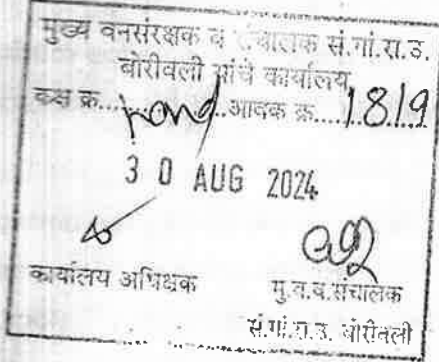 मुख्य वनसंरक्षक व संचालक सं.गां.रा.उ.
बोरीवली यांचे कार्यालय
कक्ष क्र............आवक क्र....1819
30 AUG 2024
कार्यालय अधिक्षक
मु.व.व.संचालक
सं.गां.रा.उ. बोरीवली